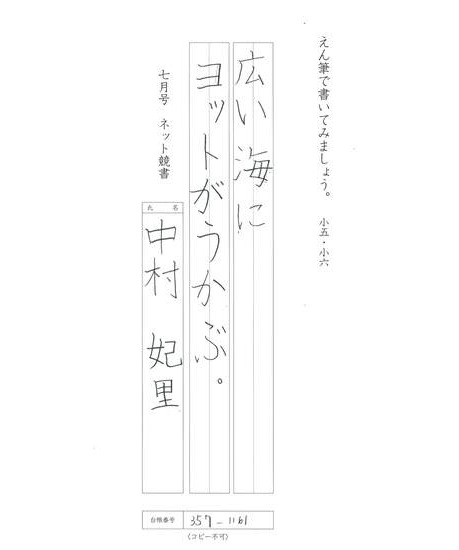 えん筆で書いてみましょう。 小五・小六
広い海に
ヨットがうかぶ。
七月号 ネット競書
氏名
中村 妃里
台帳番号 357-1161
(コピー不可)